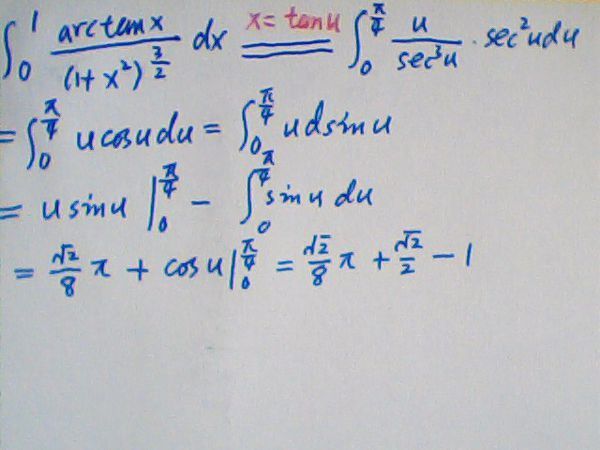 ∫₀¹ arctan x / (1+x²)^(3/2) dx x = tan u ∫₀^(π/4) u / sec³u · sec²u du
= ∫₀^(π/4) u cos u du = ∫₀^(π/4) u d sin u
= u sin u |₀^(π/4) − ∫₀^(π/4) sin u du
= √2/8 π + cos u |₀^(π/4) = √2/8 π + √2/2 − 1